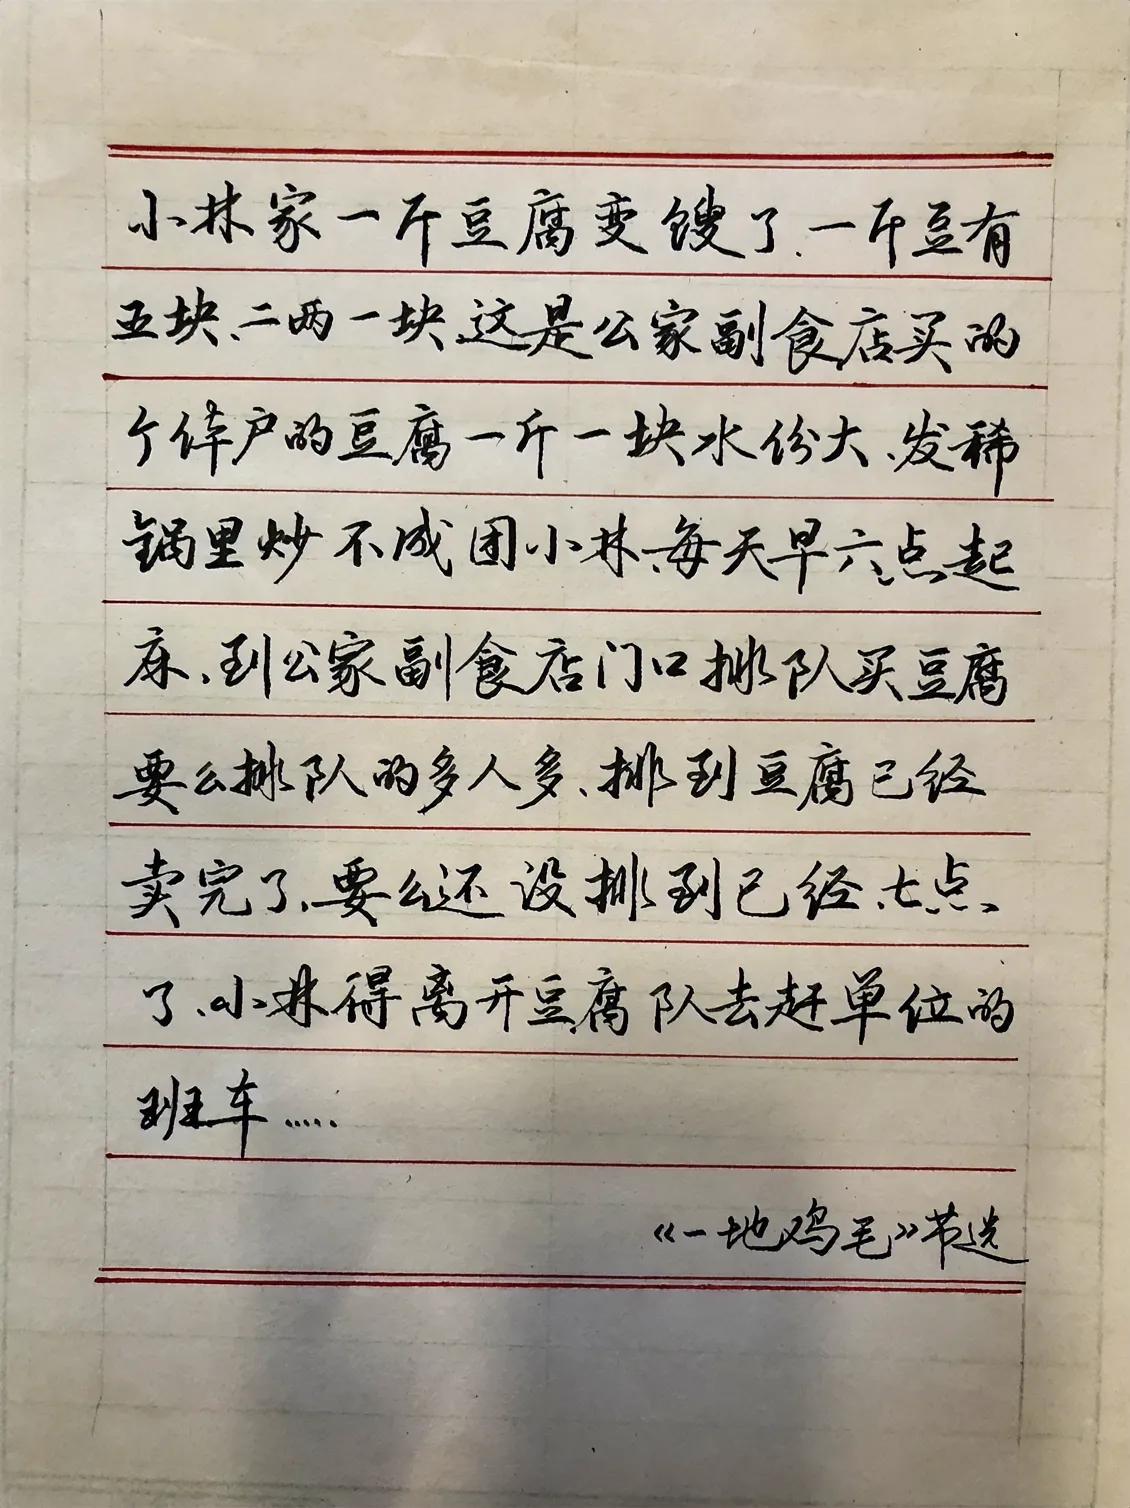 小林家一斤豆腐变馊了、一斤豆有
五块、二两一块、这是公家副食店买的
个体户的豆腐一斤一块水份大、发稀
锅里炒不成团小林、每天早六点起
床、到公家副食店门口排队买豆腐
要么排队的多人多、排到豆腐已经
卖完了、要么还没排到已经七点
了、小林得离开豆腐队去赶单位的
班车.....
《一地鸡毛》节选